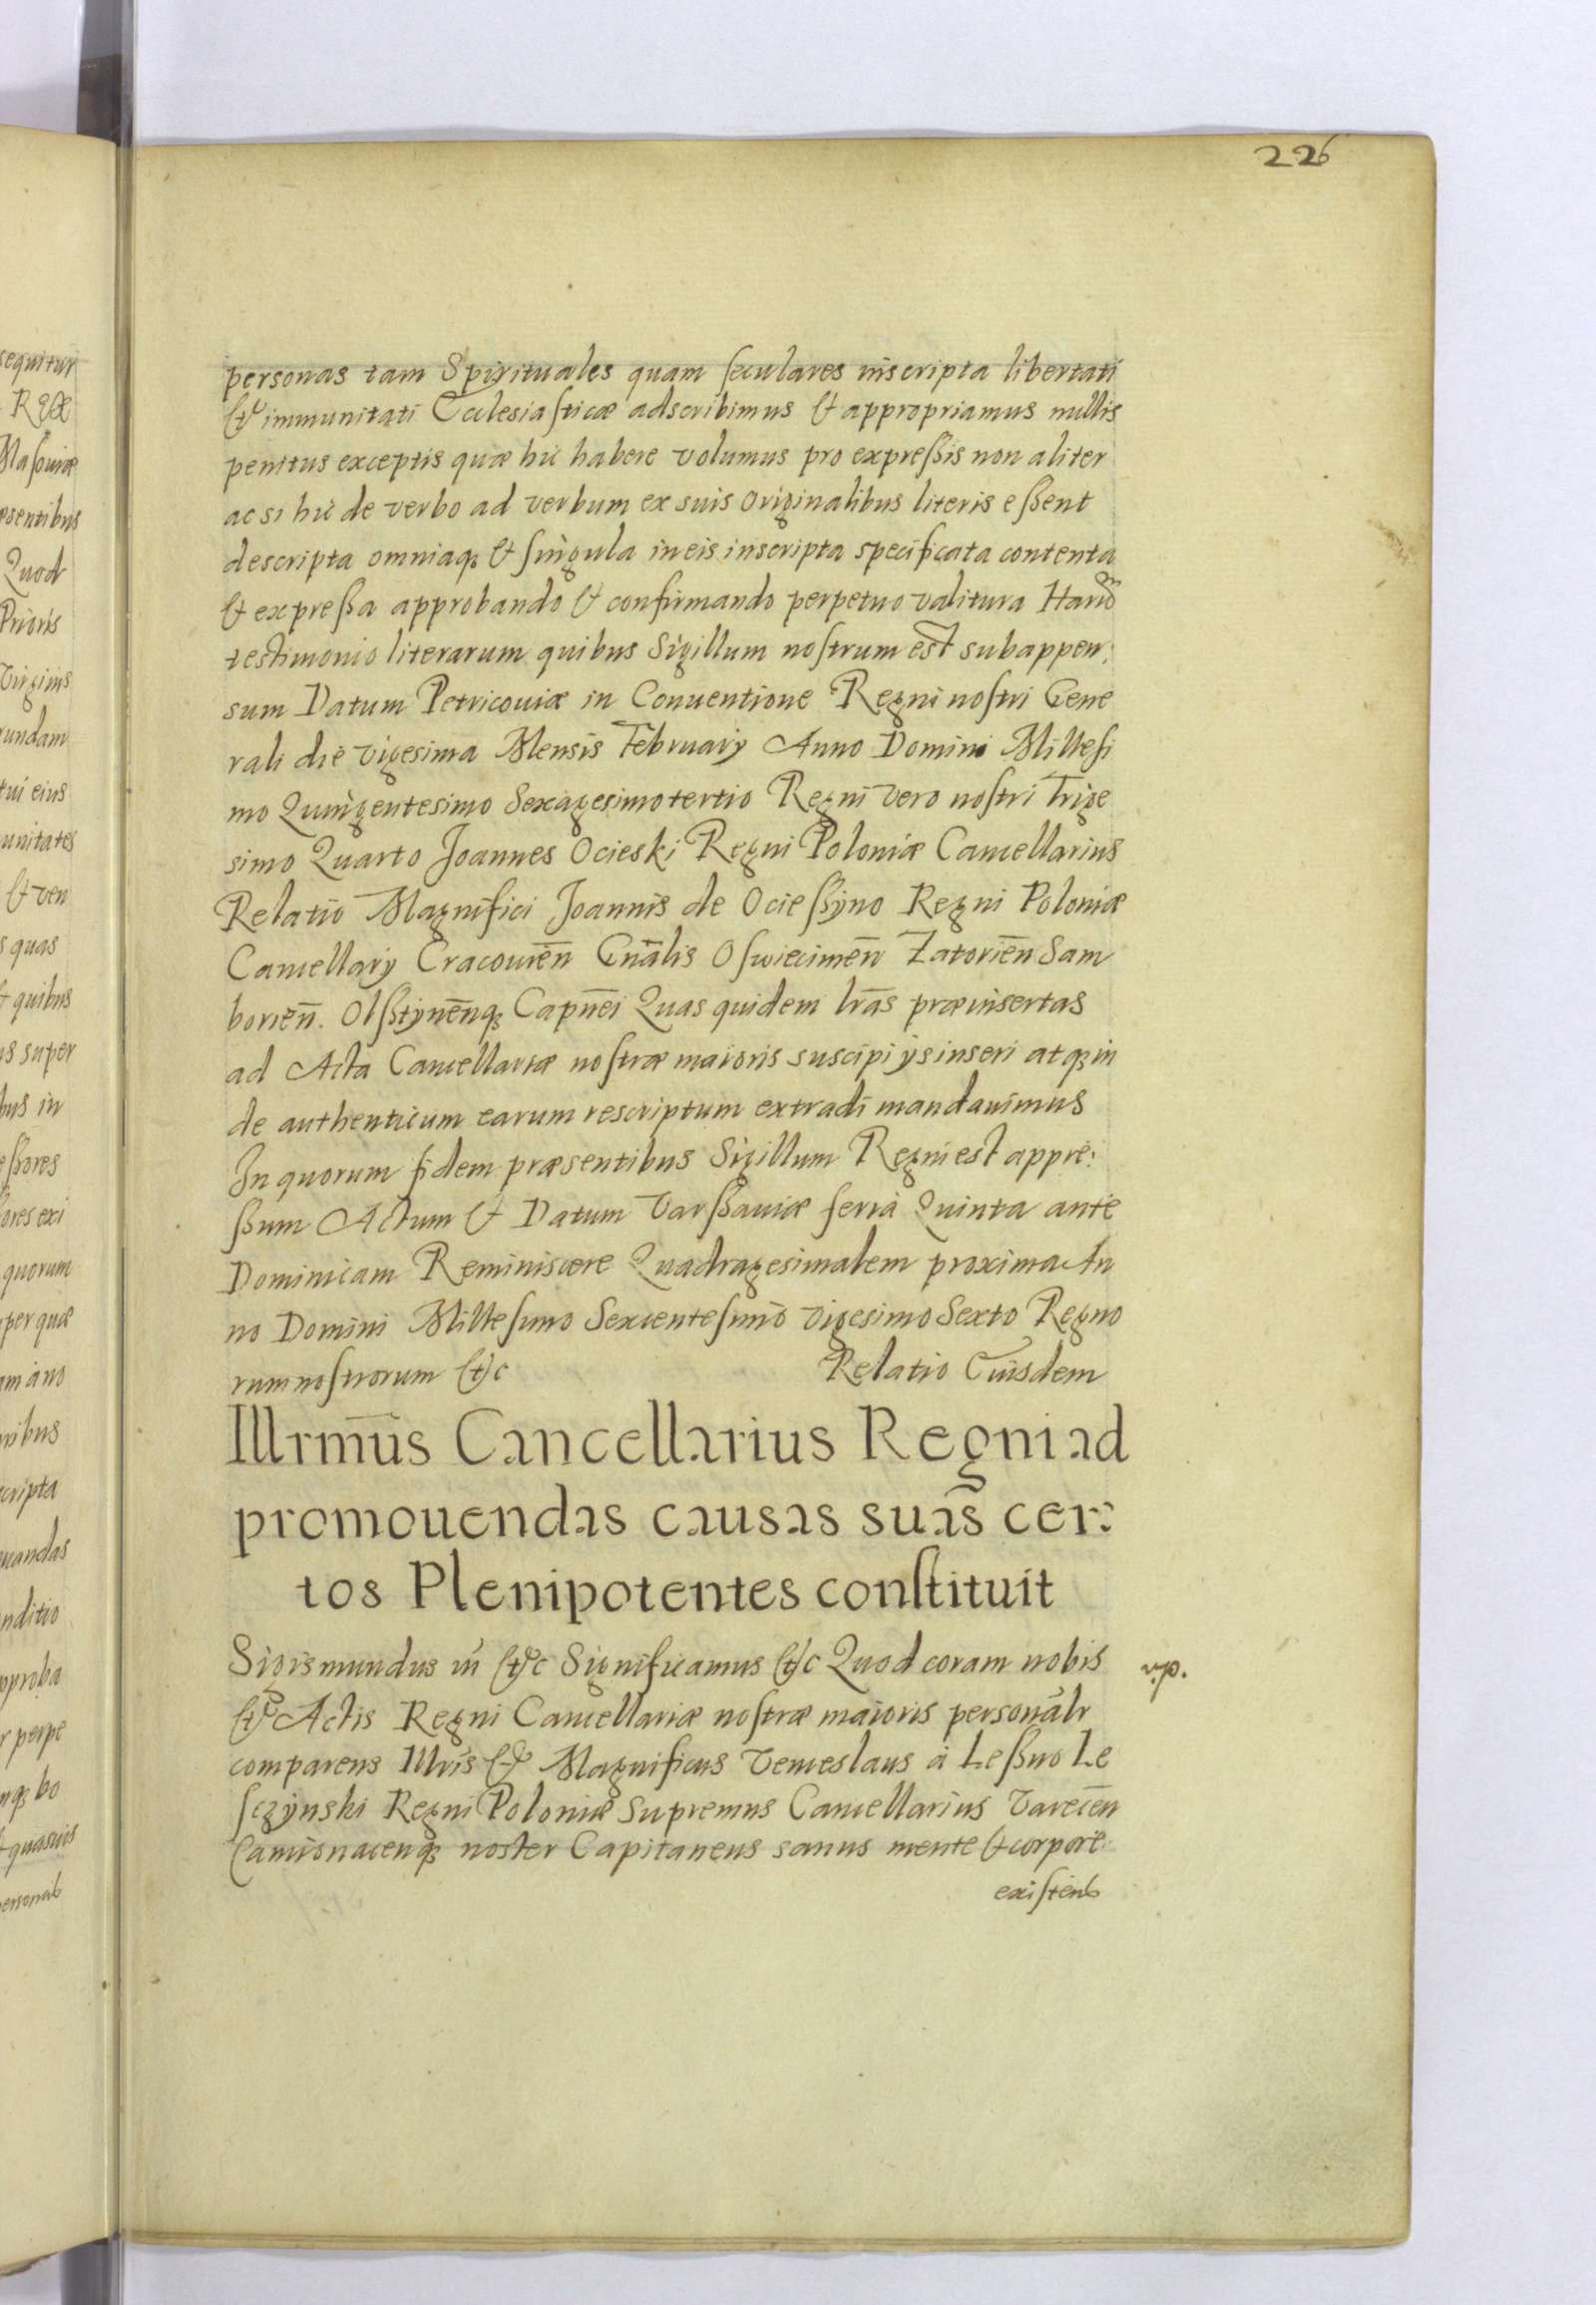 226
personas tam Spirituales quam seculares inscripta libertati
et immunitati Ecclesiasticæ adscribimus et appropriamus nullis
penitus exceptis quæ hic habere volumus pro expreßis non aliter
ac si hic de verbo ad verbum ex suis Originalibus literis eßent
descripta omniaq₃ et singula in eis inscripta specificata contenta
et expreßa approbando et confirmando perpetuo valitura Harū
testimonio literarum quibus Sigillum nostrum est subappen:
sum Datum Petricouiæ in Conuentione Regni nostri Gene
rali die vigesima Mensis February Anno Domini Millesi
mo Quingentesimo Sexagesimotertio Regni vero nostri Trige
simo Quarto Joannes Ocieski Regni Poloniæ Cancellarius
Relatio Magnifici Joannis de Ocießyno Regni Poloniæ
Cancellary Cracouień Gnālis Oswiecimeń Zatorień Sam
borień. Olßtyneńq₃ Capnēi Quas quidem lrās præinsertas
ad Acta Cancellariæ nostræ maioris suscipi ijs inseri atq₃ in
de authenticum earum rescriptum extradi mandauimus
In quorum fidem præsentibus Sigillum Regni est appre:
ßum Actum et Datum Varßauiæ feria Quinta ante
Dominicam Reminiscere Quadragesimalem proxima An
no Domini Millesimo Sexcentesimo vigesimo Sexto Regno
rum nostrorum etc Relatio Eiusdem
Illrmūs Cancellarius Regni ad
promouendas causas suas cer:
tos Plenipotentes constituit
Sigismundus iii etc Significamus etc Quod coram nobis v.p.
et Actis Regni Cancellariæ nostræ maioris personālr
comparens Illris et Magnificus Venceslaus à Leßno Le
sczynski Regni Poloniæ Supremus Cancellarius Varecēn
Camionacenq₃ noster Capitaneus sanus mente et corpore
existens